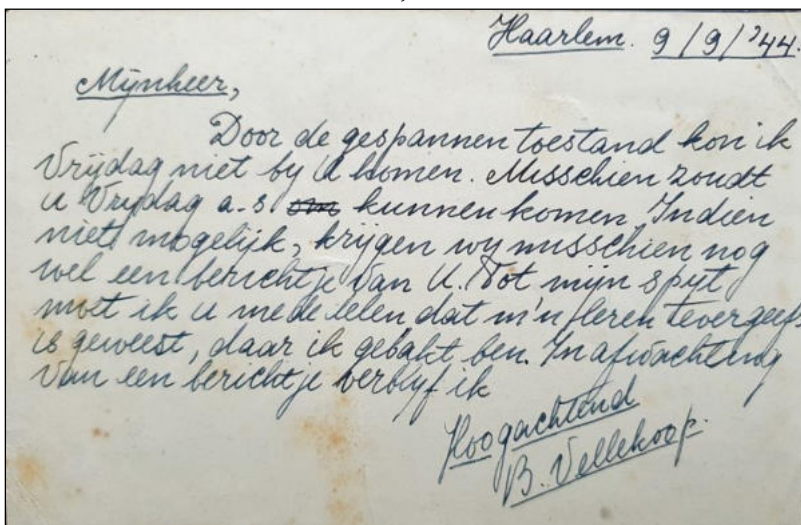 Haarlem. 9/9/'44.
Mijnheer,
Door de gespannen toestand kon ik
Vrijdag niet by U komen. Misschien zoudt
u Vrydag a.s. om kunnen komen. Indien
niet mogelijk, krijgen wy misschien nog
wel een berichtje van U. Tot mijn spijt
moet ik u mede delen, dat m'n leren tevergeefs
is geweest, daar ik gebakt ben. In afwachting
van een berichtje verblyf ik
Hoogachtend
B. Vellekoop.